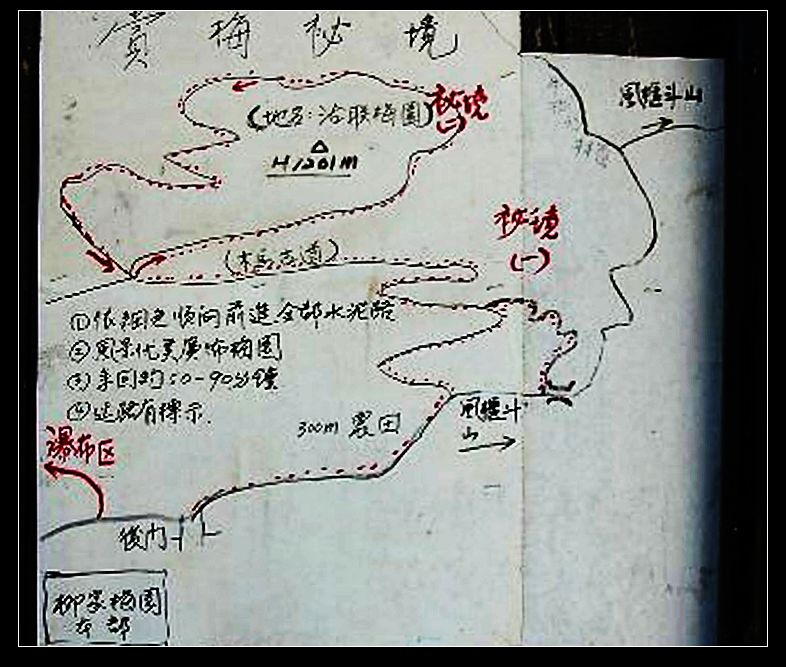 賞梅秘境
風櫃斗山
秘境
(二)
(地名:洽联梅園)
H1201m
秘境
(一)
(木馬古道)
①依紅色順向前進全部水泥路
②風景优美廣佈梅園
③来回約50-90分鐘
④延路有標示.
300m 農田
風櫃斗
山
瀑布区
後門
柳家梅園
本部